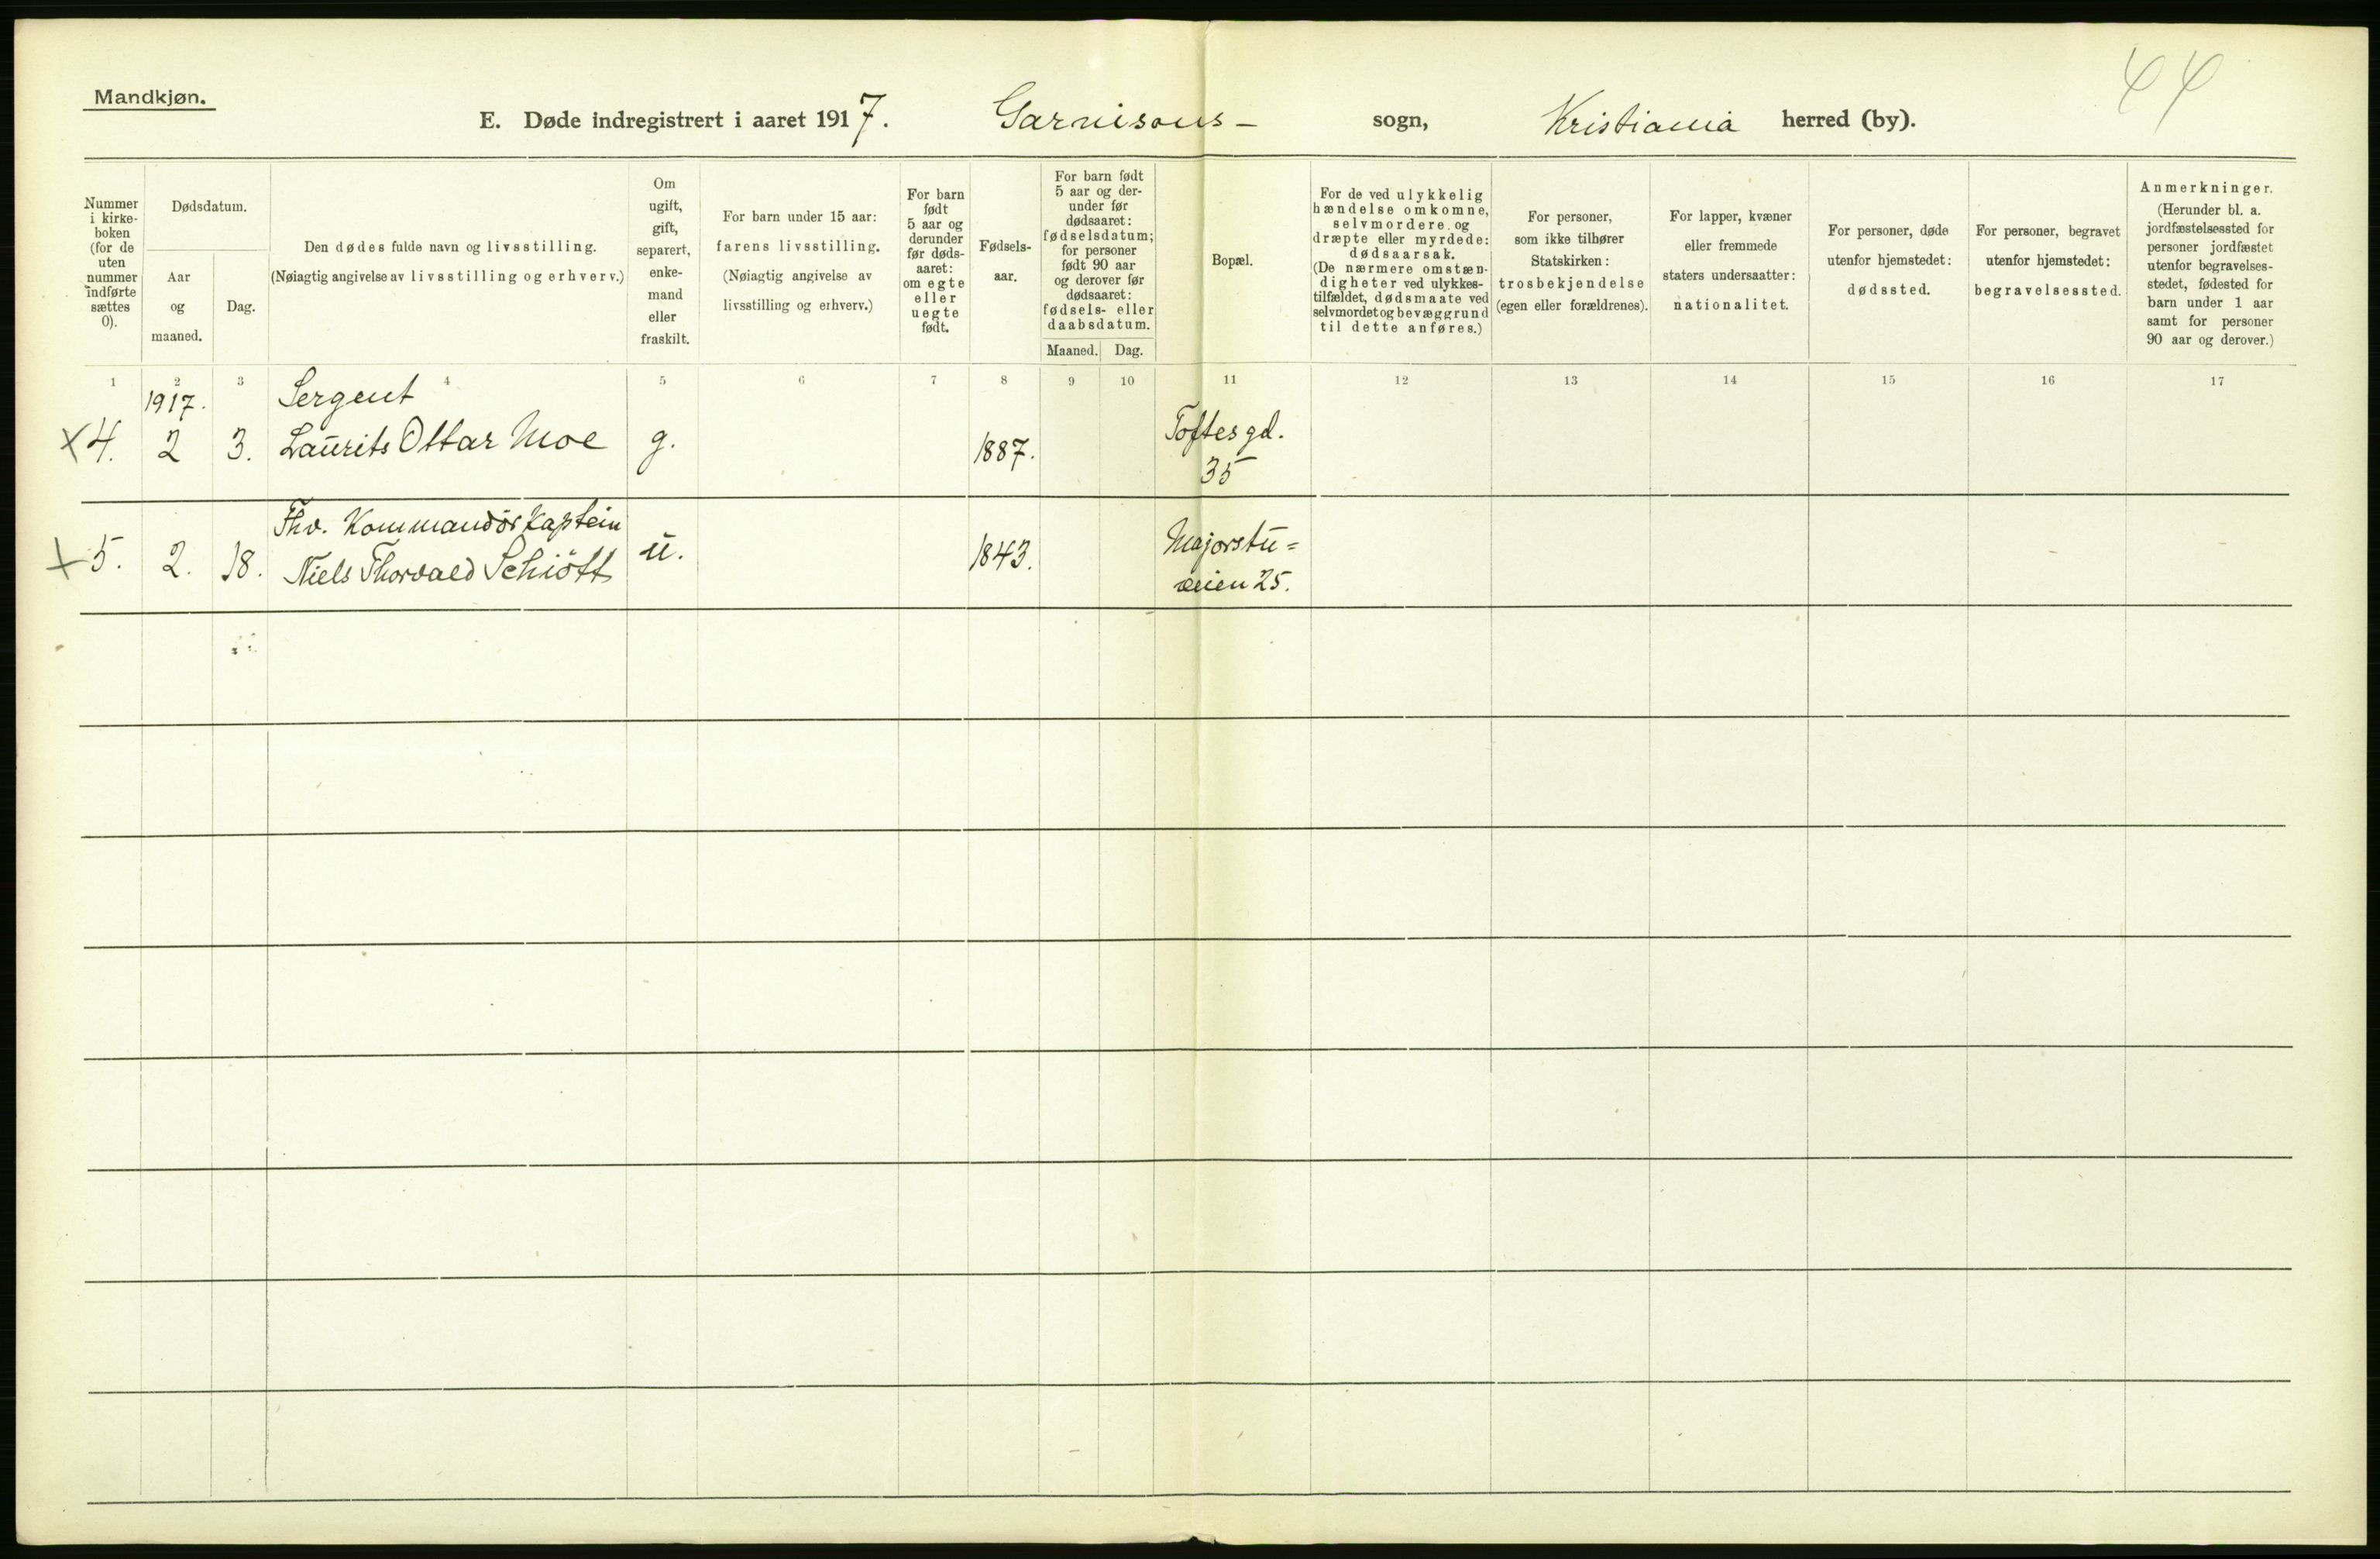 Mandkjøn.
44
E. Døde indregistrert i aaret 1917. Garnisons- sogn, Kristiania herred (by).
Nummer i kirke- boken (for de uten nummer indførte sættes 0).
Dødsdatum.
Aar og maaned.
Dag.
Den dødes fulde navn og livsstilling.
(Nøiagtig angivelse av livsstilling og erhverv.)
Om ugift, gift, separert, enke- mand eller fraskilt.
For barn under 15 aar:
farens livsstilling.
(Nøiagtig angivelse av
livsstilling og erhverv.)
For barn født 5 aar og derunder før døds- aaret: om egte eller uegte født.
Fødsels- aar.
For barn født 5 aar og der- under før dødsaaret: fødselsdatum; for personer født 90 aar og derover før dødsaaret: fødsels- eller daabsdatum.
Maaned. Dag.
Bopæl.
For de ved ulykkelig hændelse omkomne, selvmordere og dræpte eller myrdede: dødsaarsak. (De nærmere omstæn- digheter ved ulykkes- tilfældet, dødsmaate ved selvmordet og bevæggrund til dette anføres.)
For personer, som ikke tilhører Statskirken: trosbekjendelse (egen eller forældrenes).
For lapper, kvæner eller fremmede staters undersaatter: nationalitet.
For personer, døde utenfor hjemstedet: dødssted.
For personer, begravet utenfor hjemstedet: begravelsessted.
Anmerkninger. (Herunder bl. a. jordfæstelsessted for personer jordfæstet utenfor begravelses- stedet, fødested for barn under 1 aar samt for personer 90 aar og derover.)
1 2 3 4 5 6 7 8 9 10 11 12 13 14 15 16 17
1917. Sergent
X 4. 2 3. Laurits Ottar Moe g. 1887. Toftes gd.
35
Fhv. Kommandörkaptein
X 5. 2. 18. Niels Thorvald Schiött u. 1843. Majorstu=
veien 25.